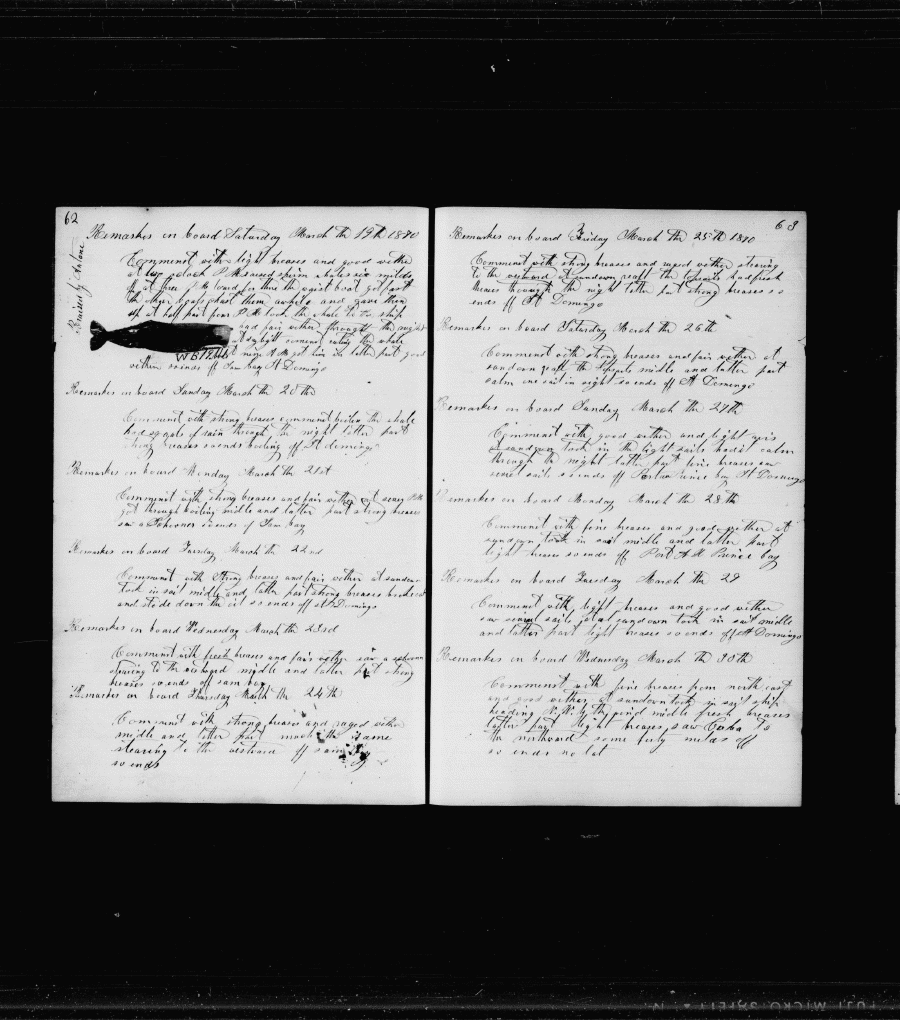 62
Remarks on board Saturday March the 19th 1870
Raised by Antone
Comment with light breases and good wether
at two oclock P M raised sperm whales six milds
off at free P M loard for them the waist boat got fast
the other boats fast them awhile and gave them
up at half past four P M took the whale to the ship
and fair wether throught the night
at daylight comment cuting the whale
at nine A M got him in latter part good
wether so ends off Sam bay St Domingo
WB 12 bbls
Remarks on board Sunday March the 20th
Comment with strong breases comment boilen the whale
had sqals of rain through the night latter part
strong breases so ends boiling off St domingo
Remarks on board Monday March the 21st
Comment with strong breases and fair wether at seven P M
got through boiling midle and latter part strong breases
saw a Schooner so ends of Sam bay
Remarks on board Tuesday March the 22nd
Comment with Strong breases and fair wether at sandown
took in sail midle and latter part strong breases
and stode down the oil so ends off st Domingo
Remarks on board Wednesday March the 23rd
Comment with fresh breases and fair wether saw a schooner
stearing to the westward midle and latter part strong
breases so ends off sam bay
Remarks on board Thursday March the 24th
Comment with strong breases and raged wether
midle and latter part much the same
stearing to the westward off sam
so ends
63
Remarks on board Friday March the 25th 1870
Comment with strong breases and ruged wether stering
to the westward at sundown reaft the topsails had fresh
breases through the night latter part strong breases so
ends off St Domingo
Remarks on board Saturday March the 26th
Comment with strong breases and fair wether at
sandown reaft the topsails midle and latter part
calm one sail in sight so ends off St Domingo
Remarks on board Sunday March the 27th
Comment with good wether and light airs
at sandown took in the light sails had calm
through the night latter part fine breases saw
some sails so ends off Port Prince bay St Domingo
Remarks on board Monday March the 28th
Comment with fine breases and good wether at
syndown took in sail midle and latter part
light breases so ends off Port A H Prince bay
Remarks on board Tuesday March the 29
Comment with light breases and good wether
saw several sails at sandown took in sail midle
and latter part light breases so ends off St Domingo
Remarks on board Wednesday March the 30th
Comment with fine breases from north east
and good wether at sandown took in sail ship
heading N.N. by the wind midle fresh breases
latter part light breases saw Cuba to
the northward some forty milds off
so ends no lat